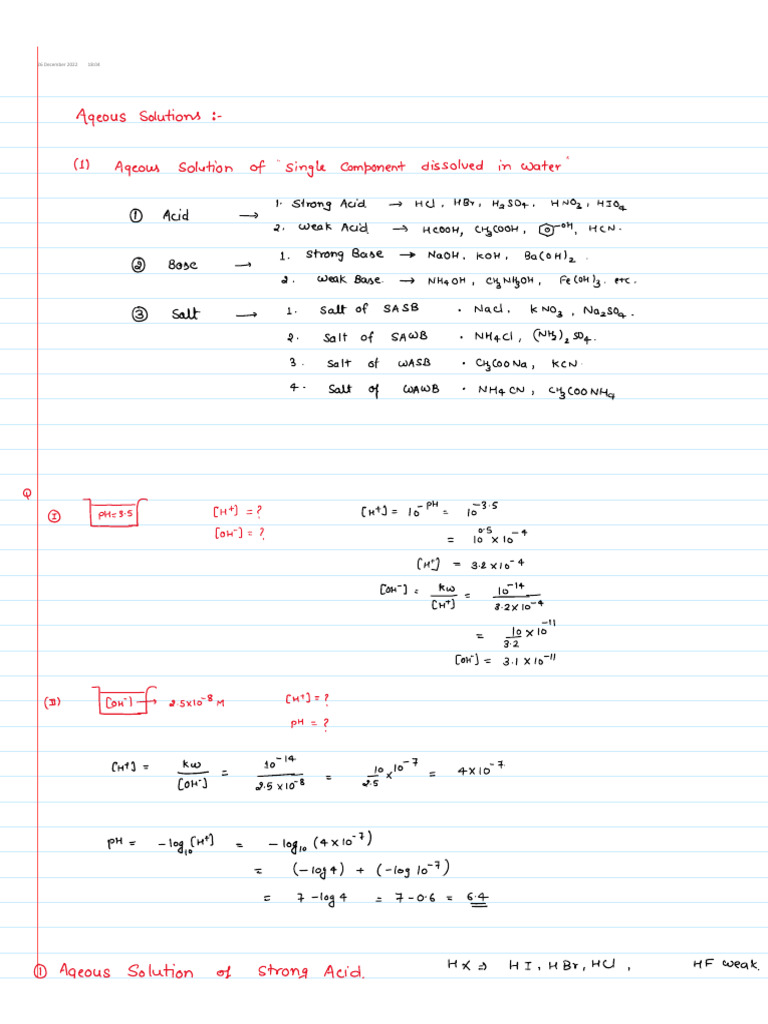 26 December 2022 18:04
Aqeous Solutions :-
(1) Aqeous Solution of "Single Component dissolved in water"
① Acid → 1. Strong Acid → HCl, HBr, H₂SO₄, HNO₃, HIO₄
2. weak Acid → HCOOH, CH₃COOH, -OH, HCN.
② Base → 1. Strong Base → NaOH, KOH, Ba(OH)₂.
2. weak Base → NH₄OH, CH₃NH₃OH, Fe(OH)₃. etc.
③ Salt → 1. Salt of SASB • Nacl, KNO₃, Na₂SO₄.
2. Salt of SAWB • NH₄Cl, (NH₃)₂SO₄.
3. Salt of WASB • CH₃COONa, KCN
4. Salt of WAWB • NH₄CN, CH₃COONH₄
Q
(I) pH=3.5 [H⁺] = ? [H⁺] = 10^-pH = 10^-3.5
[OH⁻] = ? = 10^0.5 × 10^-4
[H⁺] = 3.2×10^-4
[OH⁻] = kw/[H⁺] = 10^-14/3.2×10^-4
= 10/3.2 × 10^-11
[OH⁻] = 3.1×10^-11
(II) [OH⁻] → 2.5×10^-8 M [H⁺] = ?
pH = ?
[H⁺] = kw/[OH⁻] = 10^-14/2.5×10^-8 = 10/2.5 × 10^-7 = 4×10^-7
pH = -log₁₀[H⁺] = -log₁₀(4×10^-7)
= (-log4) + (-log 10^-7)
= 7 -log4 = 7-0.6 = 6.4
① Aqeous Solution of Strong Acid. HX ⇒ HI, HBr, HCl, HF weak.